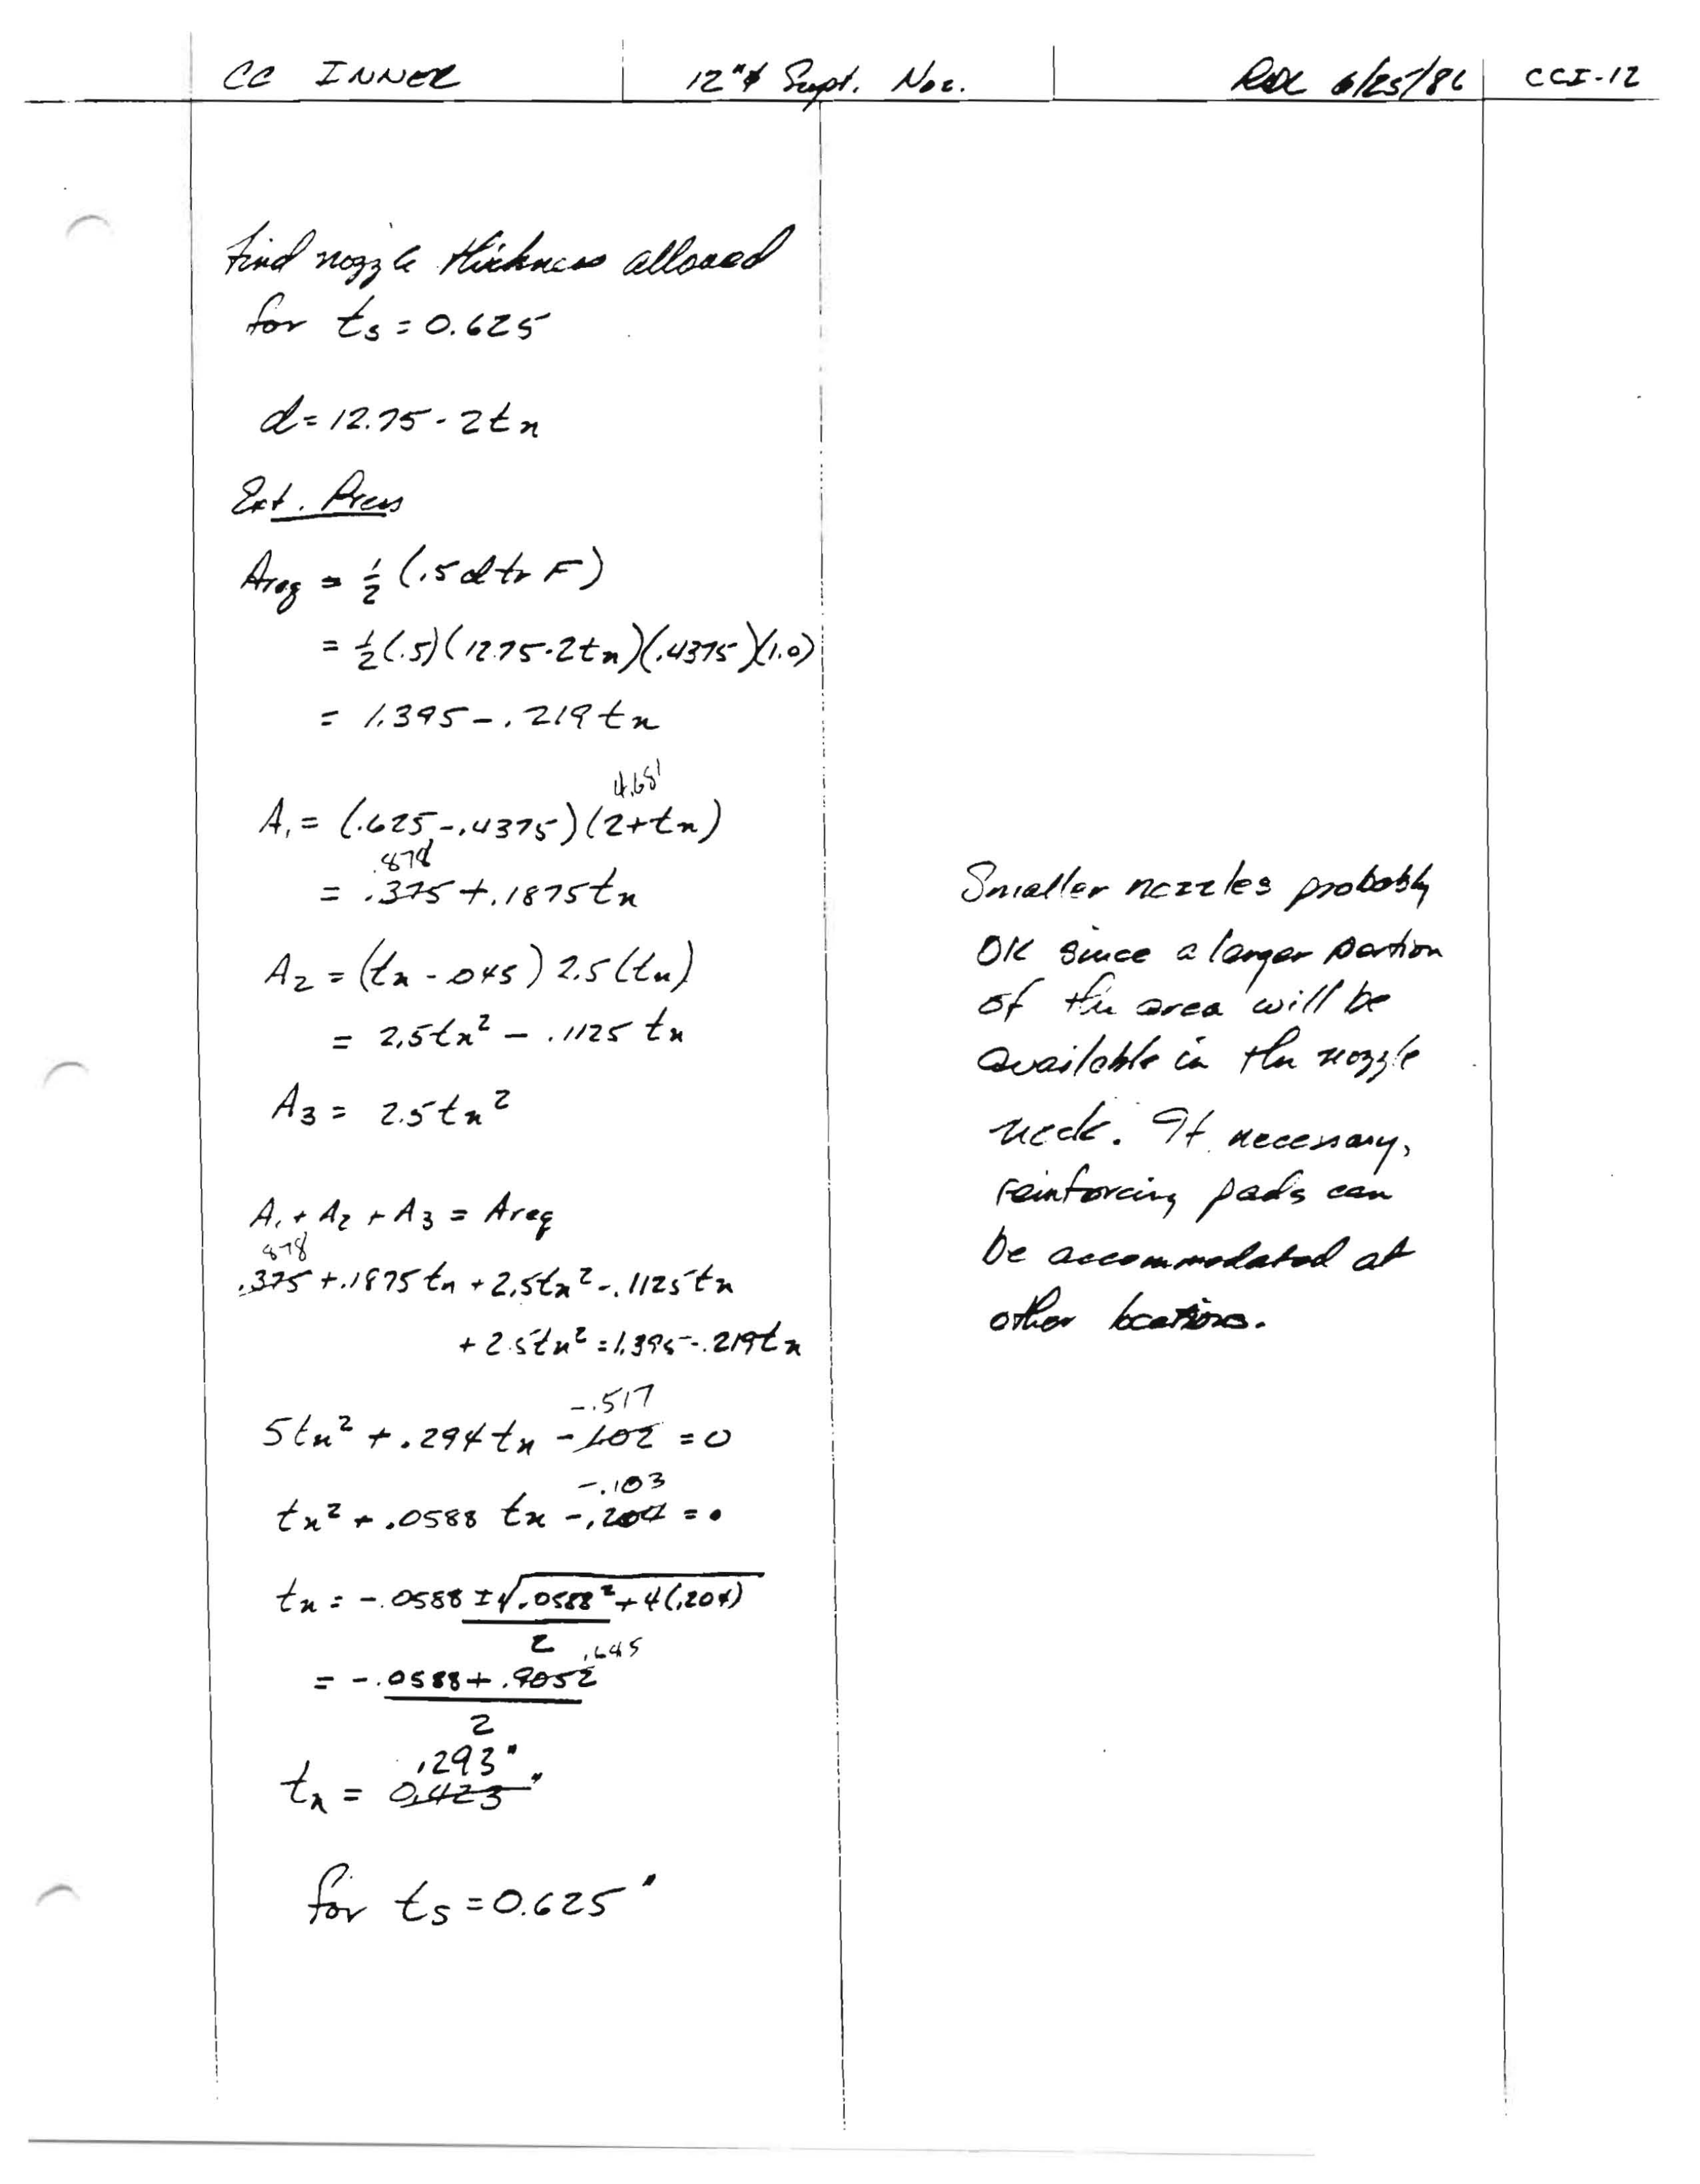 CC INNER 12"ϕ Supt. Noz. 6/25/86 CCI-12
Find nozzle thickness allowed
for ts = 0.625
d = 12.75 - 2tn
Ext. Press
Areq = 1/2 (.5 d tr F)
= 1/2 (.5)(12.75-2tn)(.4375)(1.0)
= 1.395 - .219 tn
4.681
A1 = (.625 - .4375)(2+tn)
.878
= .375 + .1875 tn
A2 = (tn - .045) 2.5 (tn)
= 2.5tn² - .1125 tn
A3 = 2.5tn²
A1 + A2 + A3 = Areq
878
.375 + .1875 tn + 2.5tn² - .1125 tn
+ 2.5tn² = 1.395 - .219tn
-.517
5tn² + .294 tn - 1.02 = 0
-.103
tn² + .0588 tn - .204 = 0
tn = -.0588 ± √.0588² + 4(.204)
2
.645
= -.0588 + .9052
2
.293"
tn = 0.423"
for ts = 0.625"
Smaller nozzles probably
OK since a larger portion
of the area will be
available in the nozzle
neck. If necessary,
reinforcing pads can
be accommodated at
other locations.